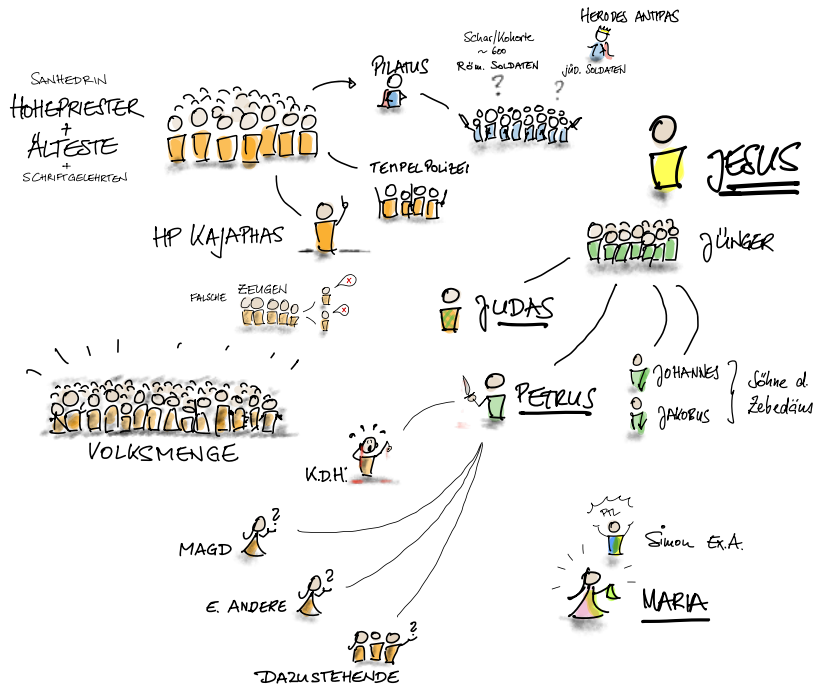 SANHEDRIN
HOHEPRIESTER
+
ÄLTESTE
+
SCHRIFTGELEHRTEN
PILATUS
Schar/Kohorte
~ 600
RÖM. SOLDATEN
?
HERODES ANTIPAS
JÜD. SOLDATEN
?
JESUS
TEMPELPOLIZEI
HP KAJAPHAS
JÜNGER
FALSCHE ZEUGEN
x
x
JUDAS
PETRUS
JOHANNES
JAKOBUS
Söhne d.
Zebedäus
VOLKSMENGE
K.D.H.
MAGD
?
E. ANDERE
?
DAZUSTEHENDE
?
Simon Ex.A.
MARIA